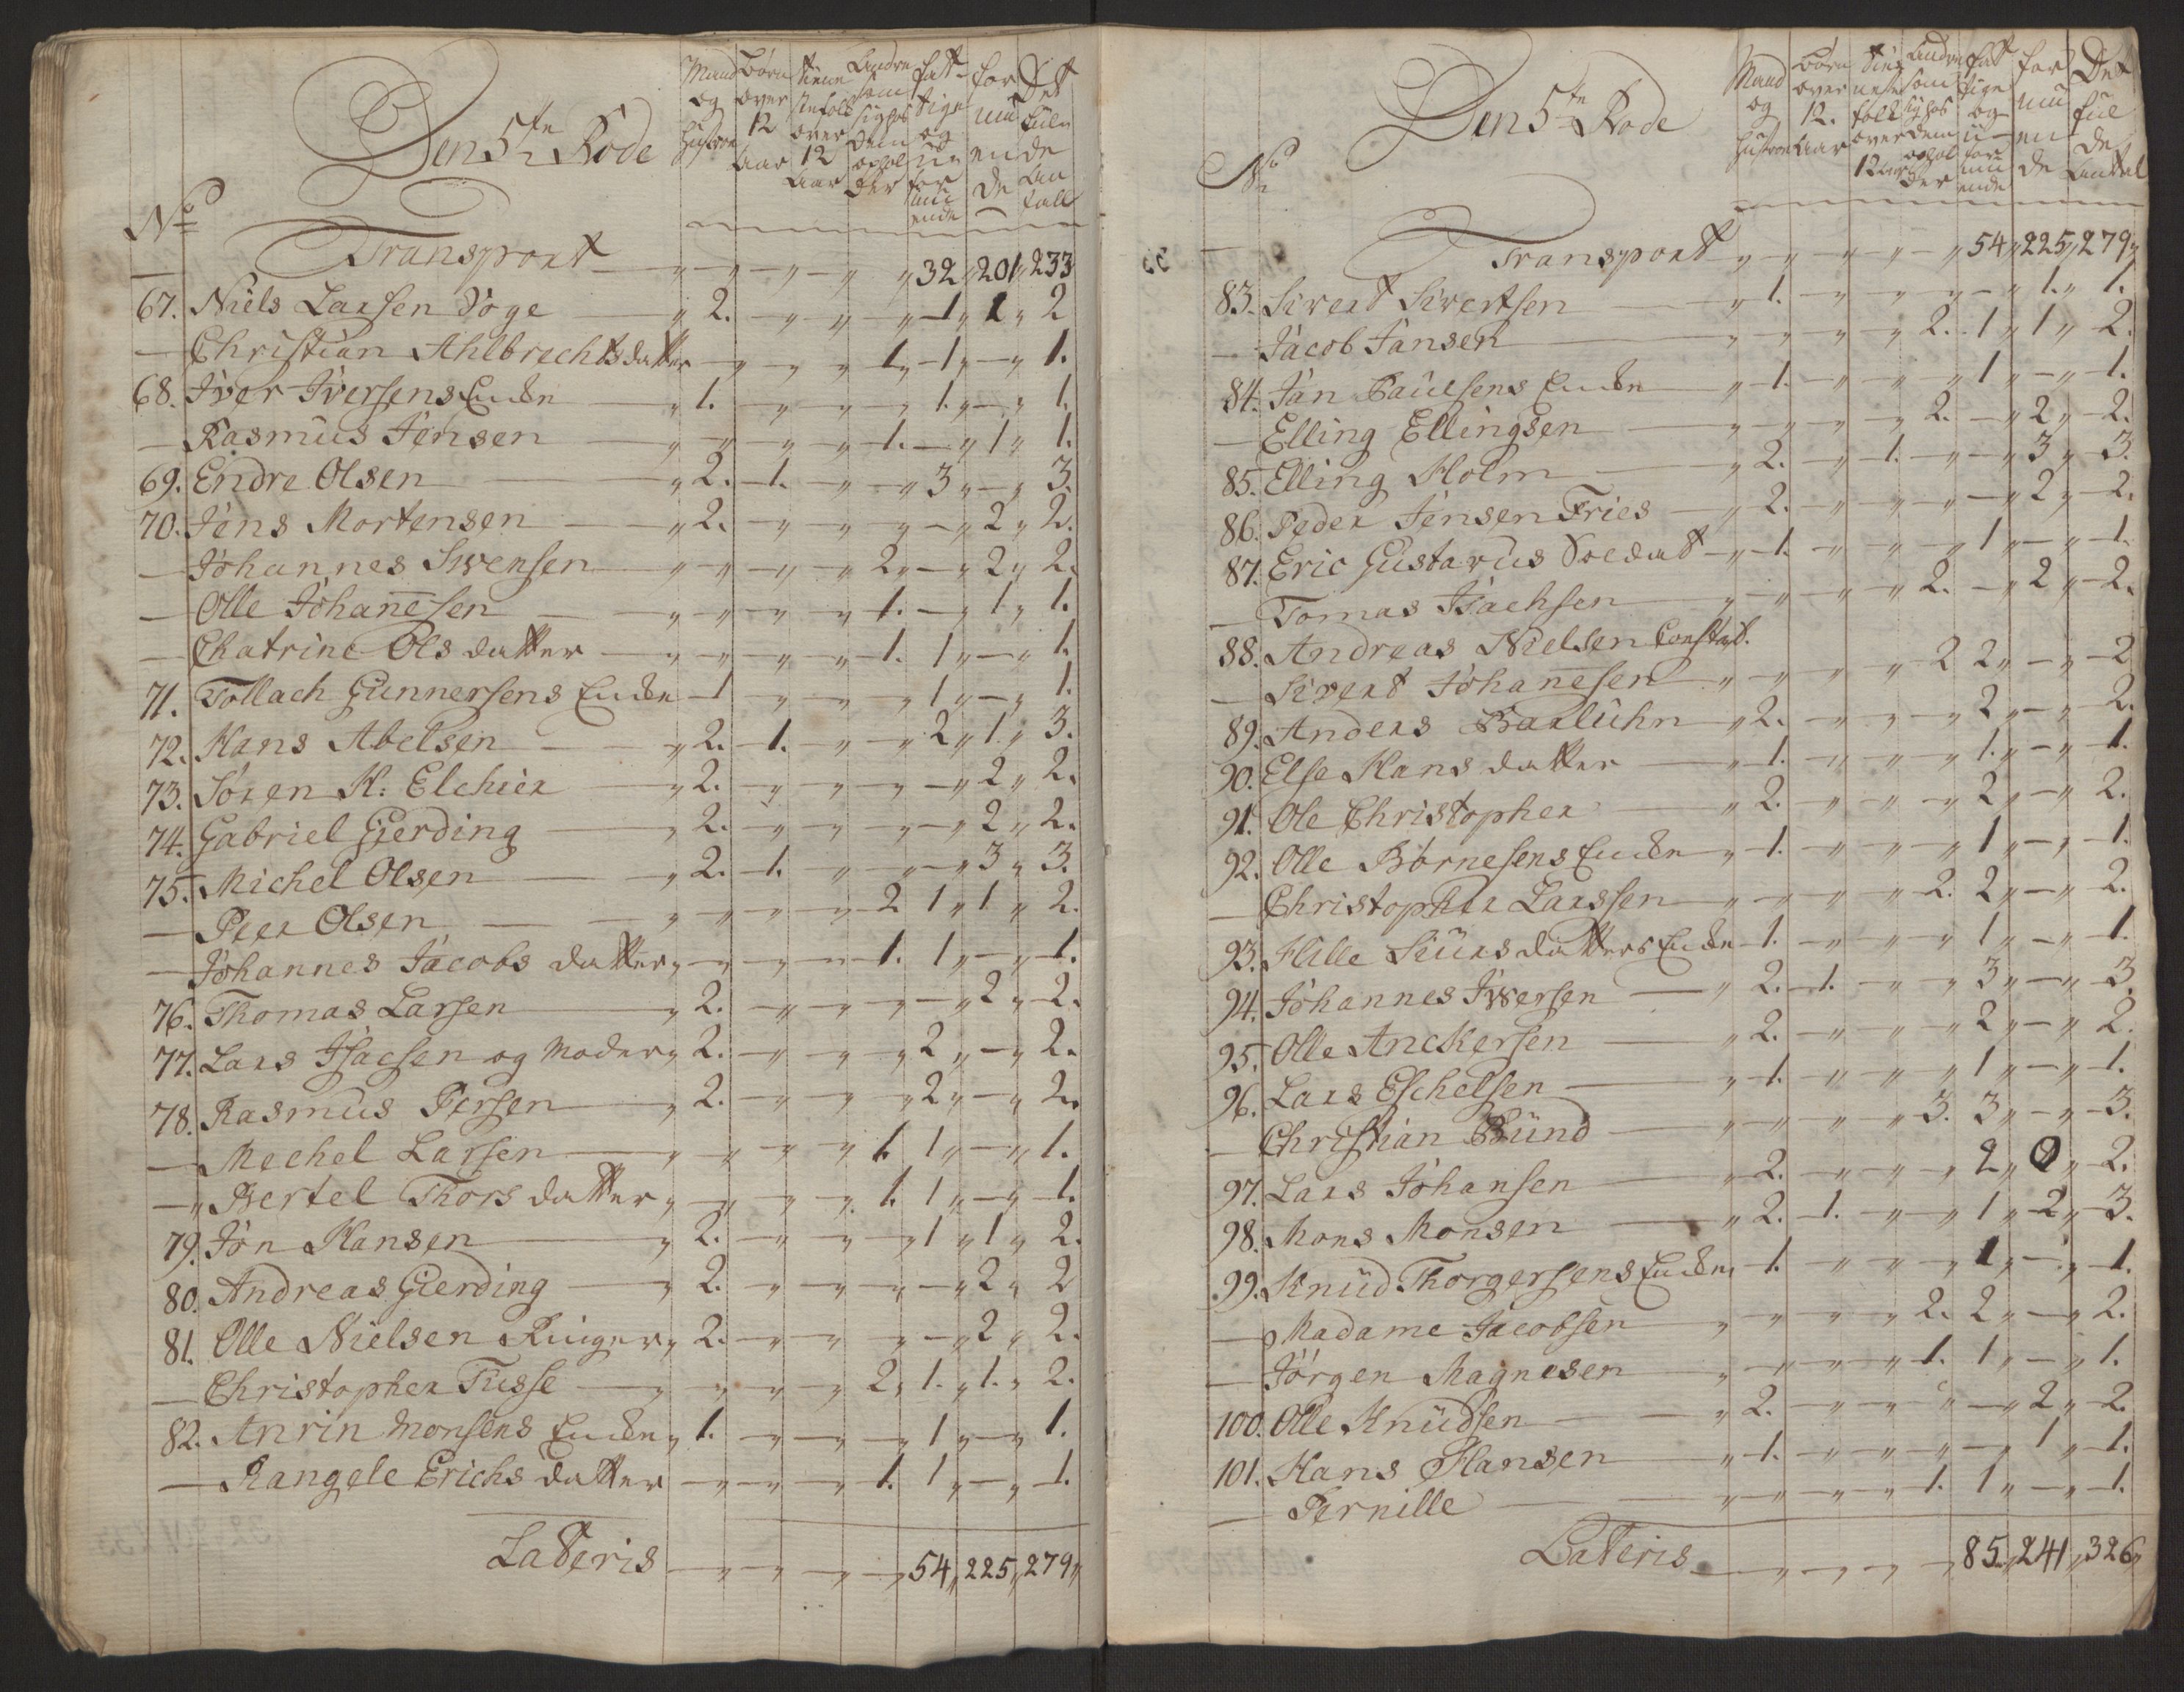 Den 5te Rode
Mand og Hustroe
Børn over 12 Aar
tiene stefolk over 12 Aar
Andre som sig hos Dem opholder
fattige og uformuende
formuende
Det fulde Antall
No
Transport 32 201 233
67. Niels Larsen Voge 2. 1 1 2
Christian Ahlbrechtsdatter 1. 1 1.
68. Iver Iversens Encke 1. 1. 1.
Rasmus Jensen 1. 1 1.
69. Endre Olsen 2. 1. 3 3.
70. Jens Mortensen 2. 2 2.
Johannes Swensen 2 2 2.
Olle Johannesen 1. 1 1.
Chatrine Olsdatter 1. 1 1.
71. Tollach Gunnersens Encke 1 1 1.
72. Hans Abelsen 2. 1. 2 1 3.
73. Søren H: Elchier 2. 2 2.
74. Gabriel Gierding 2. 2 2.
75. Michel Olsen 2. 1. 3 3.
Peer Olsen 2 1 1 2.
Johannes Jacobs datter 1. 1 1.
76. Thomas Larsen 2. 2 2.
77. Lars Isacsen og Moder 2. 2 2.
78. Rasmus Persen 2. 2 2.
Mechel Larsen 1. 1 1.
Bertel Thors datter 1. 1 1.
79. Jon Hansen 2. 1 1 2.
80. Andreas Gierding 2. 2 2
81. Olle Nielsen Ringer 2. 2 2.
Christopher Tusse 2 1. 1. 2.
82. Anrin Monsens Encke 1. 1 1.
Rangele Erichs datter 1. 1 1.
Lateris 54 225 279
Den 5te Rode
Mand og Hustroe
Børn over 12. Aar
Tienestefolk over 12 Aar
Andre som sig hos dem opholder
fattige og uformuende
formuende
Det fulde Antal
No
Transport 54 225 279
83. Sivert Sivertsen 1. 1. 1.
Jacob Jansen 2. 1 1 2.
84. Jan Paulsens Encke 1. 1 1.
Elling Ellingsen 2. 2 2.
85. Elling Holm 2. 1. 3 3.
86. Peder Jensen Fries 2. 2 2.
87. Eric Gustavus Soldat 1. 1 1.
Tomas Isachsen 2. 2 2.
88. Andreas Nielsen Constab.
Sivert Johanesen 2 2 2
89. Anders Barluhn 2. 2 2.
90. Else Hans datter 1. 1. 1.
91. Ole Christopher 2. 2 2.
92. Olle Børnesens Encke 1. 1 1.
Christopher Larssen 2. 2 2.
93. Hille Siursdatters Encke 1. 1 1.
94. Johannes Iversen 2. 1. 3 3.
95. Olle Anckersen 2. 2 2.
96. Lars Eschelsen 1. 1 1.
Christian Bünd 3. 3 3.
97. Lars Johansen 2. 2 0 2.
98. Mons Monsen 2. 1. 1 2 3.
99. Knud Thorgersens Encke 1. 1 1.
Madame Jacobsen 2. 2 2.
Jörgen Magnesen 1. 1 1.
100. Olle Knudsen 2. 2 2.
101. Hans Hansen 1. 1 1.
Pernille 1. 1 1.
Lateris 85 241 326